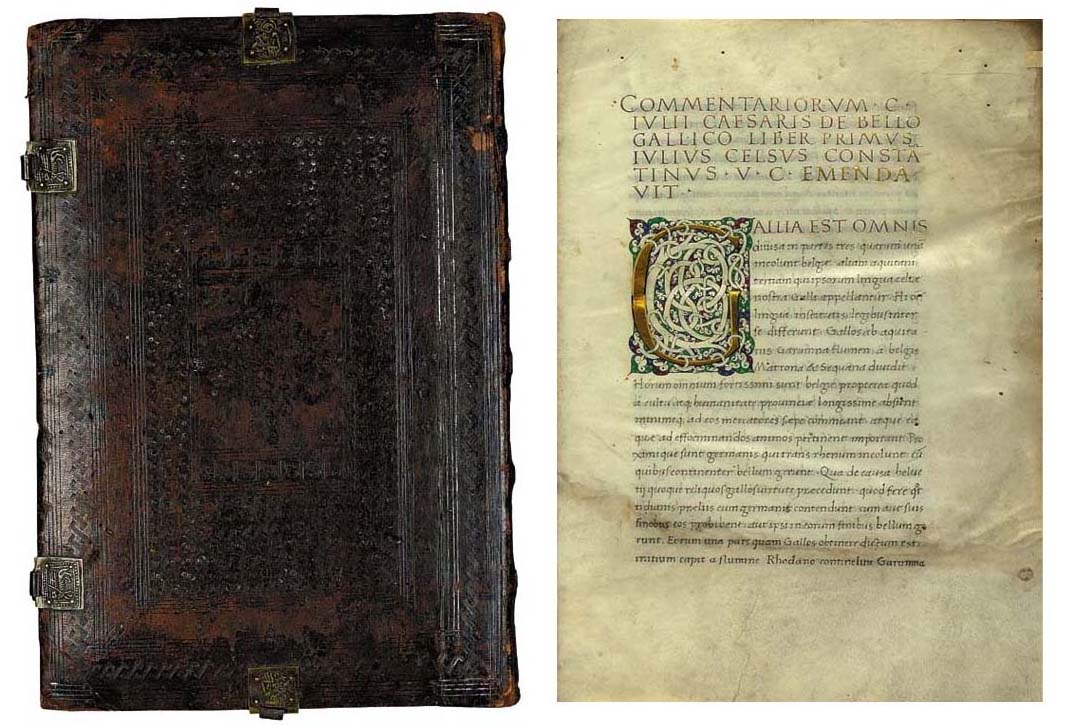 COMMENTARIORVM · C ·
IVLII CAESARIS DE BELLO
GALLICO LIBER PRIMVS
IVLIVS CELSVS CONSTA
TINVS · V · C · EMENDA
VIT ·
GALLIA EST OMNIS
diuisa in partis tres quarum unā
incolunt belgę aliam aquitani
tertiam qui ipsorum lingua celtę
nostra Galli appellantur Hi oēs
lingua institutis legibus inter
se differunt · Gallos ab aquita
nis Garumna flumen a belgis
Matrona & Sequana diuidit ·
Horum omnium fortissimi sunt belgę propterea quod
a cultu atq; humanitate prouincię longissime absunt
minimeq; ad eos mercatores sępe commeant atque ea
quę ad effoeminandos animos pertinent important Pro
ximique sunt germanis qui trans rhenum incolunt cū
quibus continenter bellum gerunt · Qua de causa helue
tij quoque reliquos gallos uirtute pręcedunt quod fere q̄t
tidianis pręliis cum germanis contendunt cum aut suis
finibus eos prohibent aut ipsi in eorum finibus bellum ge
runt. Eorum una pars quam Gallos obtinere dictum est
initium capit a flumine Rhodano continetur Garumna